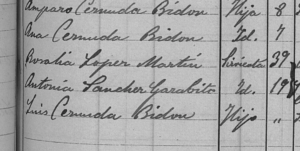 Amparo Cernuda Bidon Hija 8
Ana Cernuda Bidon Id. 7
Rosalia Lopez Martin Sirvienta 39
Antonia Sanchez Garabito Id. 19
Luis Cernuda Bidon Hijo "